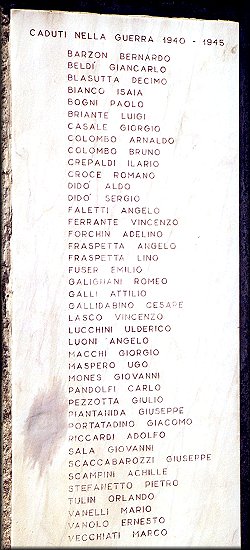 CADUTI NELLA GUERRA 1940 - 1945
BARZON BERNARDO
BELDI' GIANCARLO
BLASUTTA DECIMO
BIANCO ISAIA
BOGNI PAOLO
BRIANTE LUIGI
CASALE GIORGIO
COLOMBO ARNALDO
COLOMBO BRUNO
CREPALDI ILARIO
CROCE ROMANO
DIDO' ALDO
DIDO' SERGIO
FALETTI ANGELO
FERRANTE VINCENZO
FORCHIN ADELINO
FRASPETTA ANGELO
FRASPETTA LINO
FUSER EMILIO
GALIGNANI ROMEO
GALLI ATTILIO
GALLIDABINO CESARE
LASCO VINCENZO
LUCCHINI ULDERICO
LUONI ANGELO
MACCHI GIORGIO
MASPERO UGO
MONES GIOVANNI
PANDOLFI CARLO
PEZZOTTA GIULIO
PIANTANIDA GIUSEPPE
PORTATADINO GIACOMO
RICCARDI ADOLFO
SALA GIOVANNI
SCACCABAROZZI GIUSEPPE
SCAMPINI ACHILLE
STEFANETTO PIETRO
TULIN ORLANDO
VANELLI MARIO
VANOLO ERNESTO
VECCHIATI MARCO